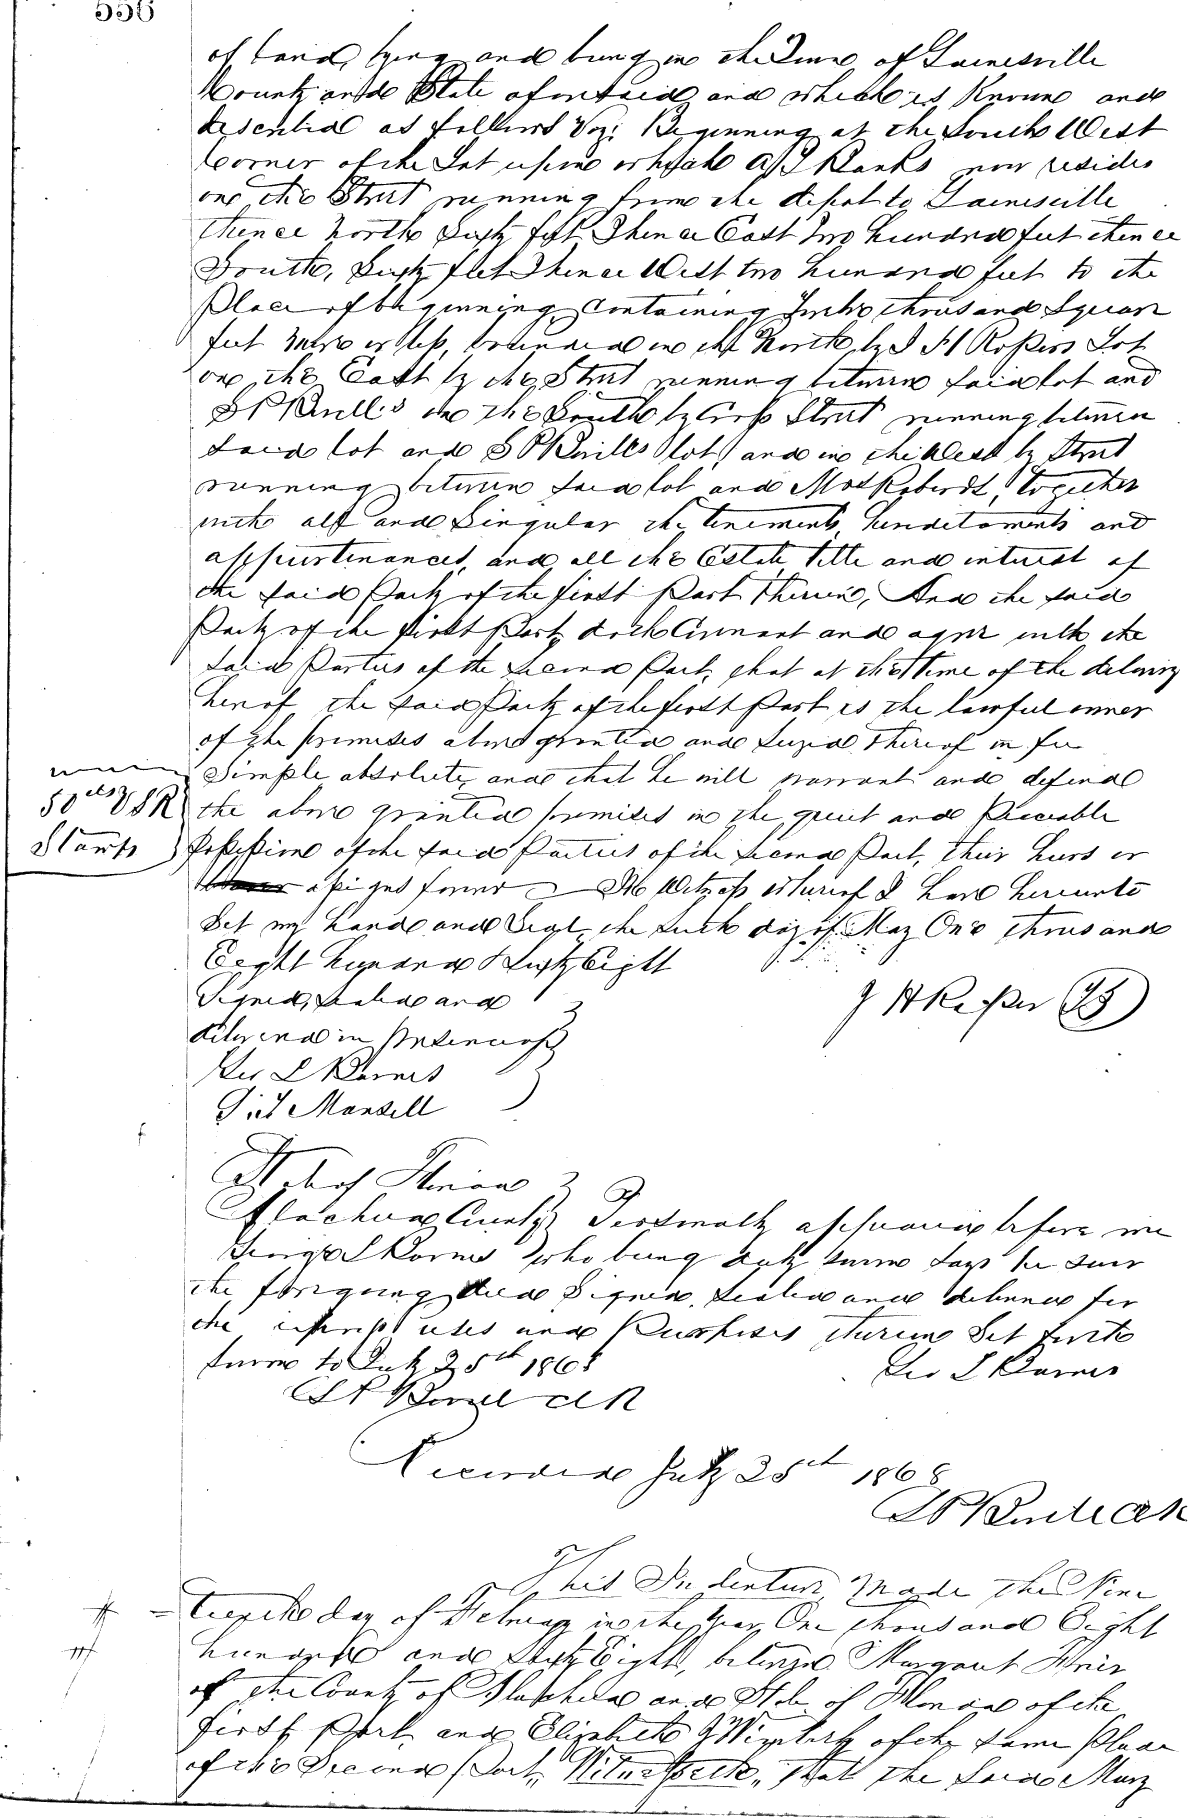 556
of land, lying and being in the Town of Gainesville
County and State aforesaid and which is Known and
described as follows Viz: Beginning at the South West
Corner of the Lot upon which A J Banks now resides
on the Street running from the depot to Gainesville
thence North Sixty feet Thence East Two hundred feet thence
South, Sixty feet Thence West two hundred feet to the
Place of beginning, Containing Twelve thousand Square
feet more or less, bounded on the North by J H Ropers Lot
on the East by the Street running between said lot and
on the South by Cross Street running between
said lot and lot, and on the West by Street
running between said lot and Mrs Roberds, Together
with all and Singular the tenements, hereditaments and
appurtenances, and all the Estate, title and interest of
the said Party of the first Part therein, And the said
Party of the first Part, doth Covenant and agree with the
said Parties of the second Part, that at the time of the delivery
hereof the said Party of the first Part is the lawful owner
of the premises above granted and seized thereof in fee
Simple absolute, and that he will warrant and defend
50cts U S R the above granted premises in the quiet and Peaceable
Stamp Possession of the said Parties of the second Part, their heirs or
assigns forever In Witness Whereof I have hereunto
Set my hand and Seal, the sixth day of May One thousand
Eight hundred & Sixty Eight
Signed, sealed and
J H Roper (LS)
delivered in presence of
Geo L Barnes
Mansell
State of Florida
Alachua County Personally appeared before me
George L Barnes who being duly sworn says he saw
the foregoing deed Signed, sealed and delivered for
the uses and Purposes therein Set forth
sworn to July 25th 1868
Geo L Barnes
Clk
Recorded July 25th 1868
Clk
This Indenture, Made the Nine
teenth day of February in the Year One thousand Eight
hundred and Sixty Eight, between Margaret
of the County of Alachua and State of Florida of the
first Part, and Elizabeth of the same Place
of the Second Part, Witnesseth, that the said Mary